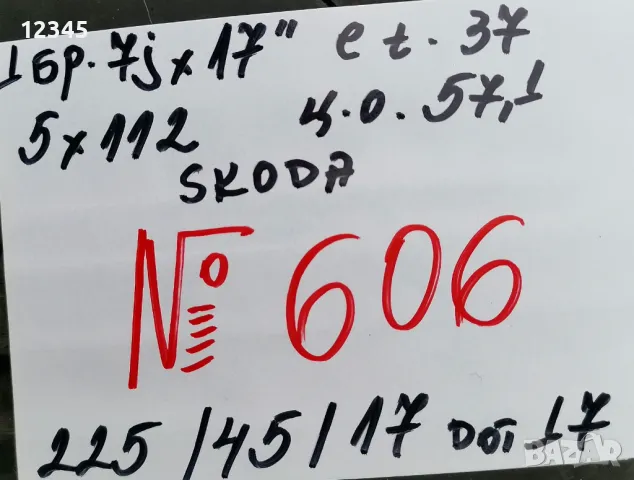 12345
1бр. 7j x 17" et. 37
5x112 ц.о. 57,1
SKODA
№ 606
225/45/17 DOT 17
BAZAR